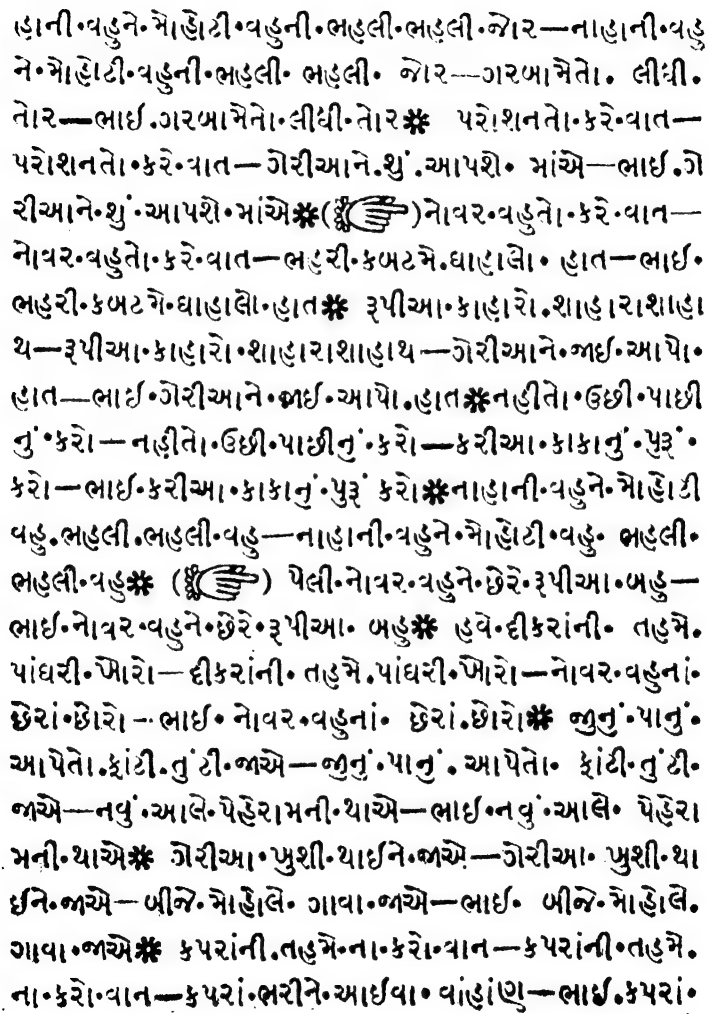 હાની•વહુને•મોહોટી•વહુની•ભહલી•ભહલી•જોર—નાહાની•વહુ
ને•મોહોટી•વહુની•ભહલી• ભહલી• જોર—ગરબામેતો. લીધી.
તોર—ભાઈ.ગરબામેતો•લીધી•તોર✽ પરોશનતો•કરે•વાત—
પરોશનતો•કરે•વાત—ગેરીઆને.શું.આપશે• માંએ—ભાઈ.ગે
રીઆને•શું•આપશે•માંએ✽(☞)નોવર•વહુતો•કરે•વાત—
નોવર•વહુતો•કરે•વાત—ભહરી•કબટમે.ઘાહાલો• હાત—ભાઈ•
ભહરી•કબટમે•ઘાહાલો•હાત✽ રૂપીઆ•કાહારો.શાહારાશાહા
થ—રૂપીઆ•કાહારો•શાહારાશાહાથ—ગેરીઆને•જાઈ•આપો•
હાત—ભાઈ•ગેરીઆને•જાઈ•આપો.હાત✽નહીતો•ઉછી•પાછી
નું•કરો—નહીતો•ઉછી•પાછીનું•કરો—કરીઆ•કાકાનું•પુરૂં•
કરો—ભાઈ•કરીઆ•કાકાનું•પુરૂં કરો✽નાહાની•વહુને•મોહોટી
વહુ.ભહલી.ભહલી•વહુ—નાહાની•વહુને•મોહોટી•વહુ• ભહલી•
ભહલી•વહુ✽ (☞) પેલી•નોવર•વહુને•છેરે•રૂપીઆ•બહુ—
ભાઈ•નોવર•વહુને•છેરે•રૂપીઆ• બહુ✽ હવે•દીકરાંની• તહમે.
પાંઘરી•ખોરો—દીકરાંની•તહમે.પાંઘરી•ખોરો—નોવર•વહુનાં•
છેરાં•છોરો—ભાઈ•નોવર•વહુનાં• છેરાં.છોરો✽ જીનું•પાનું•
આપેતો.ફાંટી.તુંટી•જાએ—જીનું•પાનું. આપેતો• ફાંટી•તુંટી•
જાએ—નવું•આલે•પેહેરામની•થાએ—ભાઈ•નવું•આલે• પેહેરા
મની•થાએ✽ ગેરીઆ•ખુશી•થાઈને•જાએ—ગેરીઆ• ખુશી•થા
ઈને•જાએ—બીજે•મોહોલે• ગાવા•જાએ—ભાઈ• બીજે•મોહોલે.
ગાવા•જાએ✽ કપરાંની.તહમે•ના•કરો•વાન—કપરાંની•તહમે.
ના•કરો•વાન—કપરાં•ભરીને•આઈવા• વાંહાંણ—ભાઈ.કપરાં•